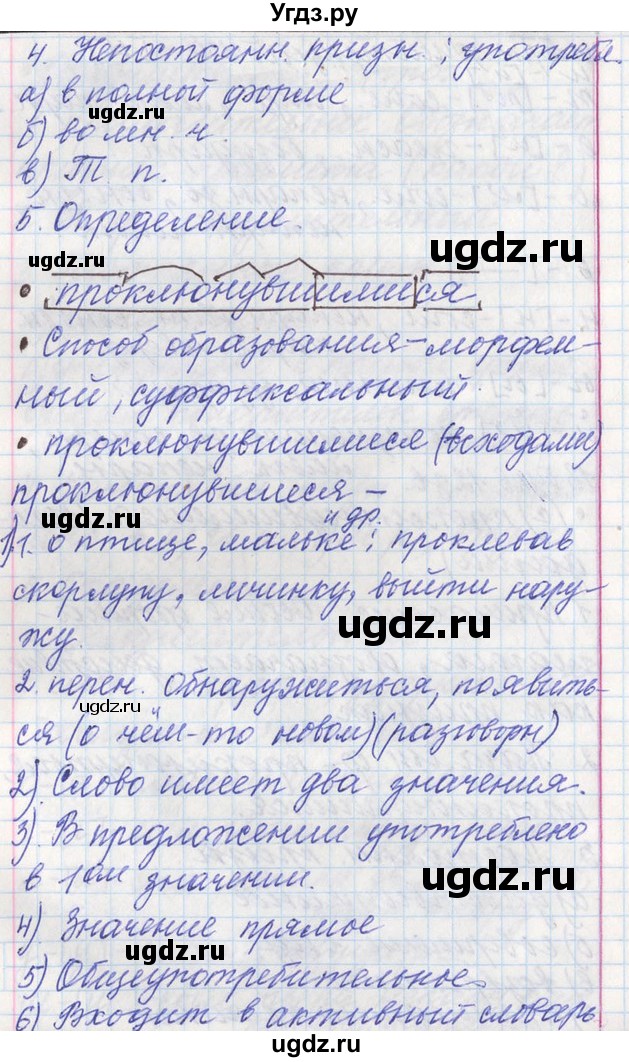 Угдз.ру
4. Непостоянн. призн.: употребл.
а) в полный форме
б) во мн. ч.
в) Т. п.
5. Определение.
• проклюнувшимися
• Способ образования – морфем-
ный, суффиксальный.
• проклюнувшимися (всходами)
проклюнувшиеся –
1) 1. о птице, мальке и др.: проклевав
скорлупу, личинку, выйти нару-
жу.
2. перен. Обнаружиться, появить-
ся (о чём-то новом) (разговорн)
2) Слово имеет два значения.
3) В предложении употреблено
в 1ом значении.
4) Значение прямое
5) Общеупотребительное
6) Входит в активный словарь
ugdz.ru
ugdz.ru
ugdz.ru
ugdz.ru
ugdz.ru
ugdz.ru
ugdz.ru
ugdz.ru
ugdz.ru
ugdz.ru
ugdz.ru